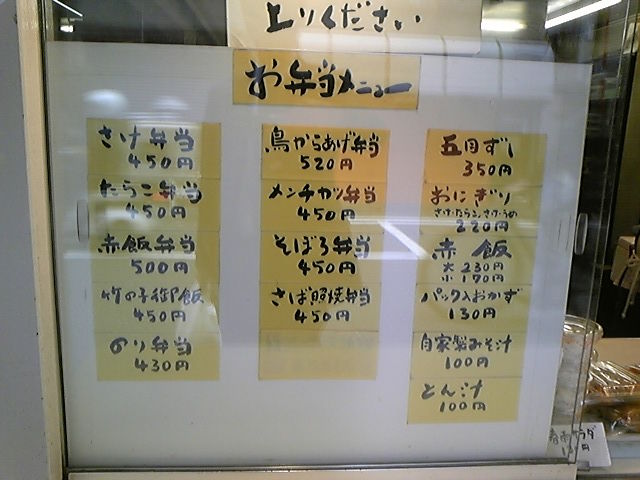 上りください
お弁当メニュー
さけ弁当
450円
たらこ弁当
450円
赤飯弁当
500円
竹の子御飯
450円
のり弁当
430円
鳥からあげ弁当
520円
メンチカツ弁当
450円
そぼろ弁当
450円
さば照焼弁当
450円
五目ずし
350円
おにぎり
さけ・たらこ・さけ・うめ
220円
赤飯
大 230円
小 170円
パック入おかず
130円
自家製みそ汁
100円
とん汁
100円